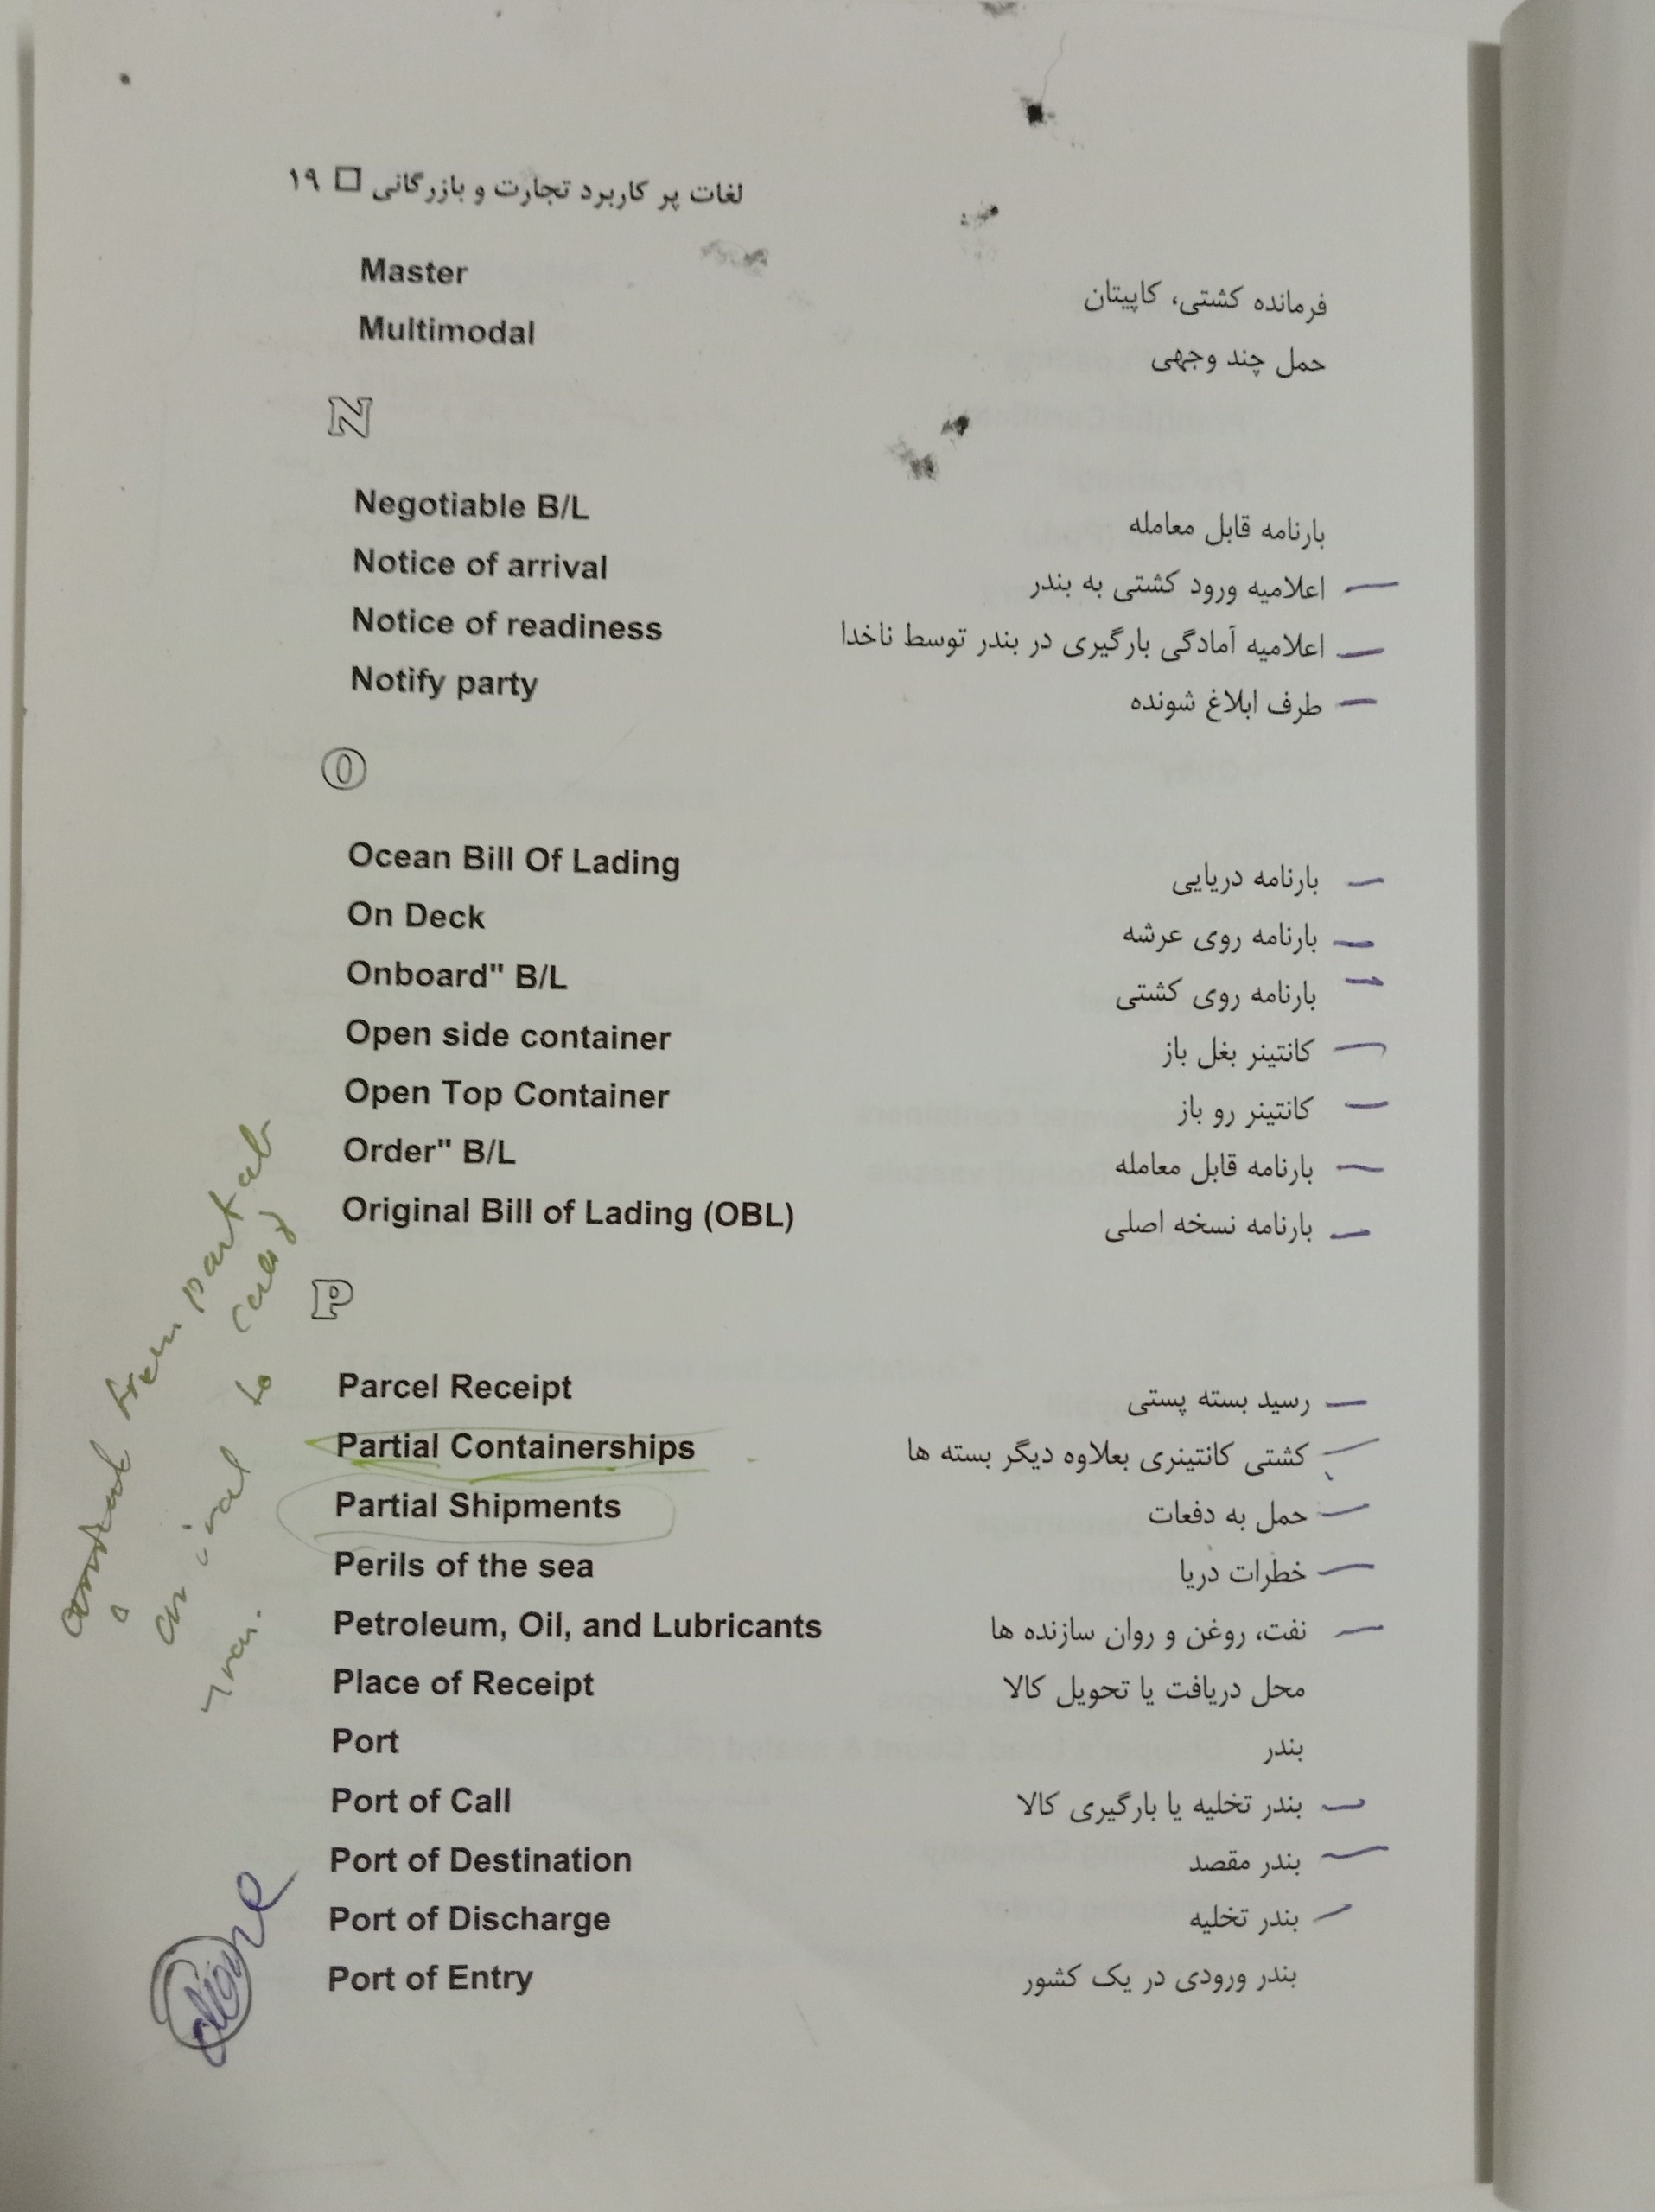 لغات پر کاربرد تجارت و بازرگانی □ ۱۹
Master فرمانده کشتی، کاپیتان
Multimodal حمل چند وجهی
N
Negotiable B/L بارنامه قابل معامله
Notice of arrival اعلامیه ورود کشتی به بندر
Notice of readiness اعلامیه آمادگی بارگیری در بندر توسط ناخدا
Notify party طرف ابلاغ شونده
O
Ocean Bill Of Lading بارنامه دریایی
On Deck بارنامه روی عرشه
Onboard" B/L بارنامه روی کشتی
Open side container کانتینر بغل باز
Open Top Container کانتینر رو باز
Order" B/L بارنامه قابل معامله
Original Bill of Lading (OBL) بارنامه نسخه اصلی
P
Parcel Receipt رسید بسته پستی
Partial Containerships کشتی کانتینری بعلاوه دیگر بسته ها
Partial Shipments حمل به دفعات
Perils of the sea خطرات دریا
Petroleum, Oil, and Lubricants نفت، روغن و روان سازنده ها
Place of Receipt محل دریافت یا تحویل کالا
Port بندر
Port of Call بندر تخلیه یا بارگیری کالا
Port of Destination بندر مقصد
Port of Discharge بندر تخلیه
Port of Entry بندر ورودی در یک کشور
to
done